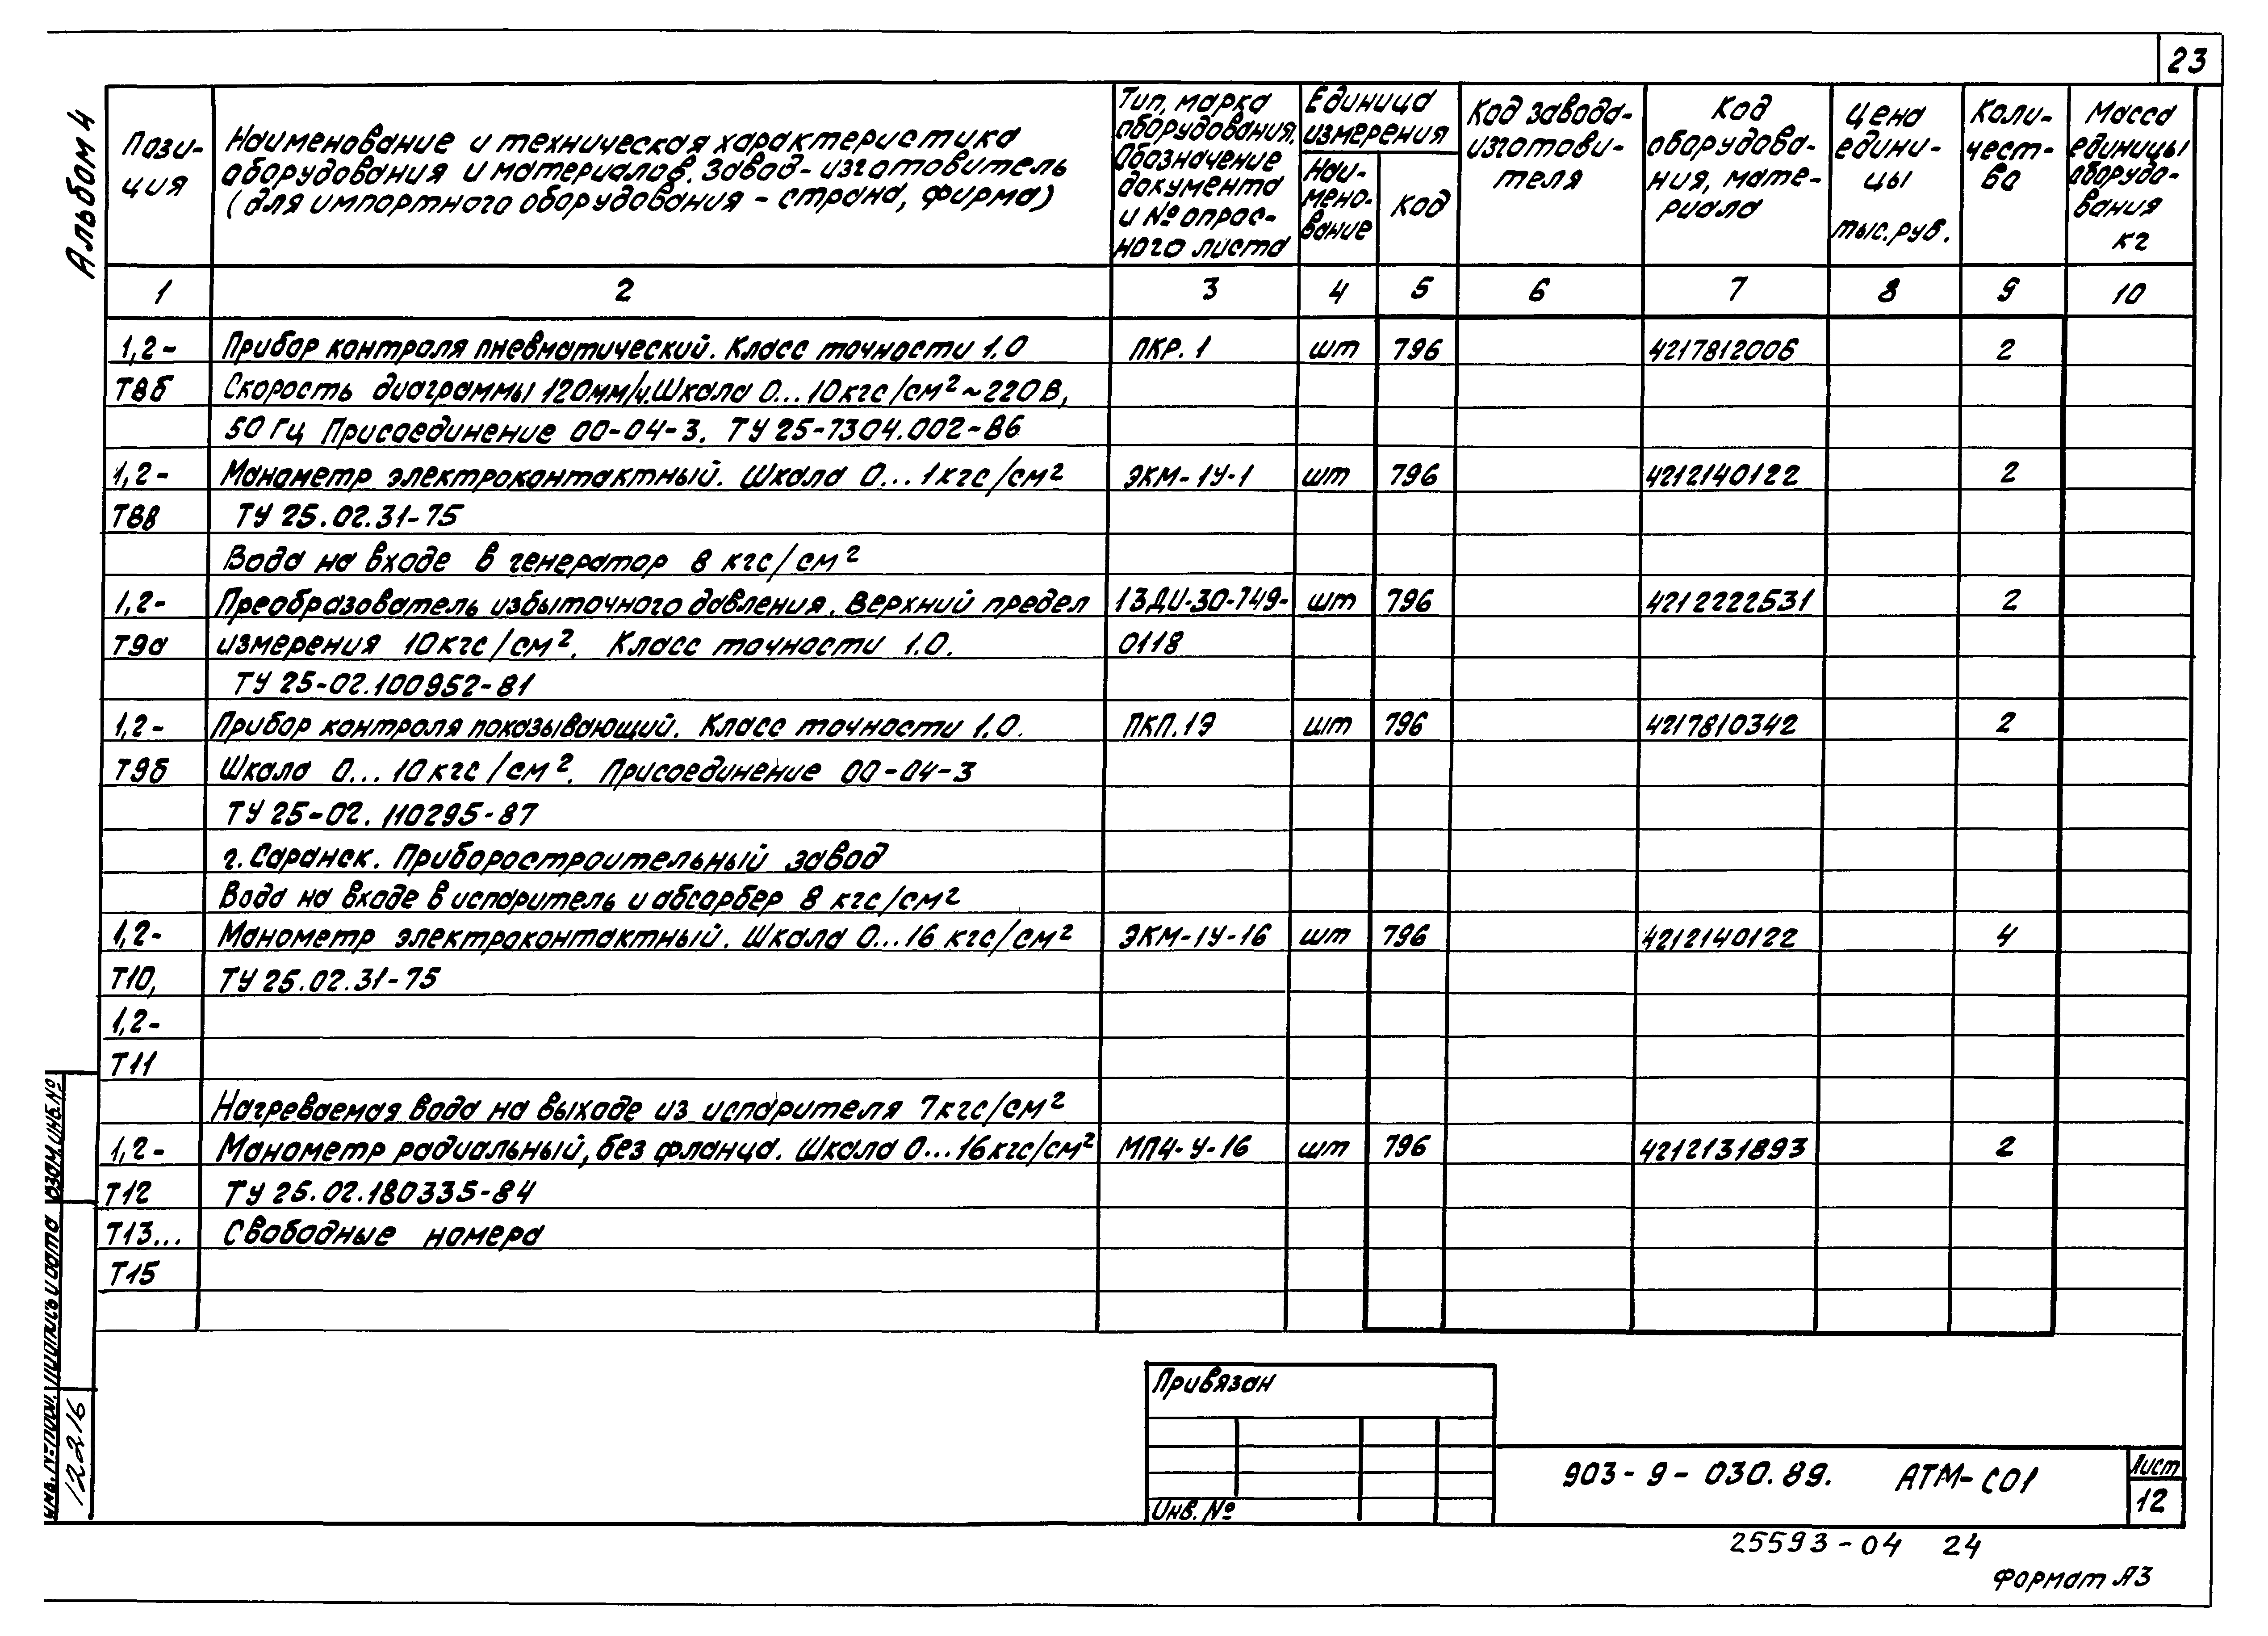 23
Альбом 4
Пози-
ция
Наименование и техническая характеристика
оборудования и материалов. Завод-изготовитель
(для импортного оборудования - страна, фирма)
Тип, марка
оборудования.
Обозначение
документа
и № опрос-
ного листа
Единица
измерения
Наи-
мено-
вание
код
Код завода-
изготови-
теля
Код
оборудова-
ния, мате-
риала
Цена
едини-
цы
тыс.руб.
Коли-
чест-
во
Масса
единицы
оборудо-
вания
кг
1 2 3 4 5 6 7 8 9 10
1,2- Прибор контроля пневматический. Класс точности 1.0 ПКР.1 шт 796 4217812006 2
Т8б Скорость диаграммы 120мм/ч. Шкала 0...10кгс/см² ~220В,
50 Гц Присоединение 00-04-3. ТУ 25-7304.002-86
1,2- Манометр электроконтактный. Шкала 0...1кгс/см² ЭКМ-1У-1 шт 796 4212140122 2
Т8в ТУ 25.02.31-75
Вода на входе в генератор 8 кгс/см²
1,2- Преобразователь избыточного давления. Верхний предел 13ДИ-30-749- шт 796 4212222531 2
Т9а измерения 10кгс/см². Класс точности 1.0. 0118
ТУ 25-02.100952-81
1,2- Прибор контроля показывающий. Класс точности 1.0. ПКП.1Э шт 796 4217810342 2
Т9б Шкала 0...10кгс/см². Присоединение 00-04-3
ТУ 25-02.110295-87
г. Саранск. Приборостроительный завод
Вода на входе в испаритель и абсорбер 8 кгс/см²
1,2- Манометр электроконтактный. Шкала 0...16 кгс/см² ЭКМ-1У-16 шт 796 4212140122 4
Т10, ТУ 25.02.31-75
1,2-
Т11
Нагреваемая вода на выходе из испарителя 7кгс/см²
1,2- Манометр радиальный, без фланца. Шкала 0...16кгс/см² МП4-У-16 шт 796 4212131893 2
Т12 ТУ 25.02.180335-84
Т13... Свободные номера
Т15
Взам.инв.№
Подпись и дата
Инв. № подл.
12216
Привязан
Инв. №
903-9-030.89. АТМ-С01
Лист
12
25593-04 24
Формат А3